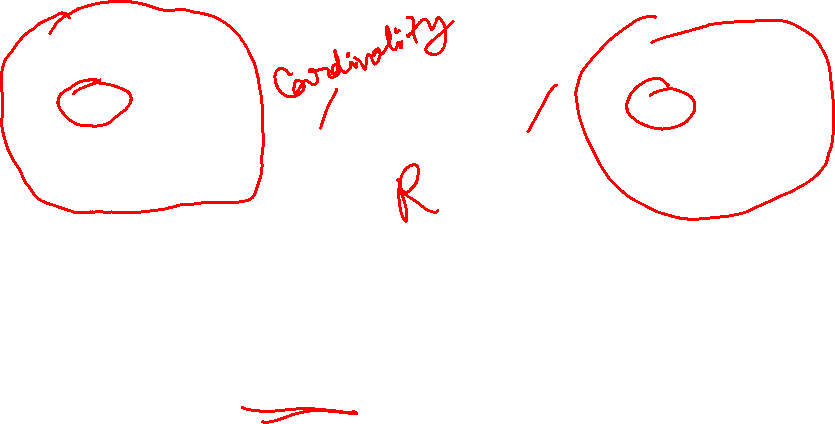 Cardinality
R